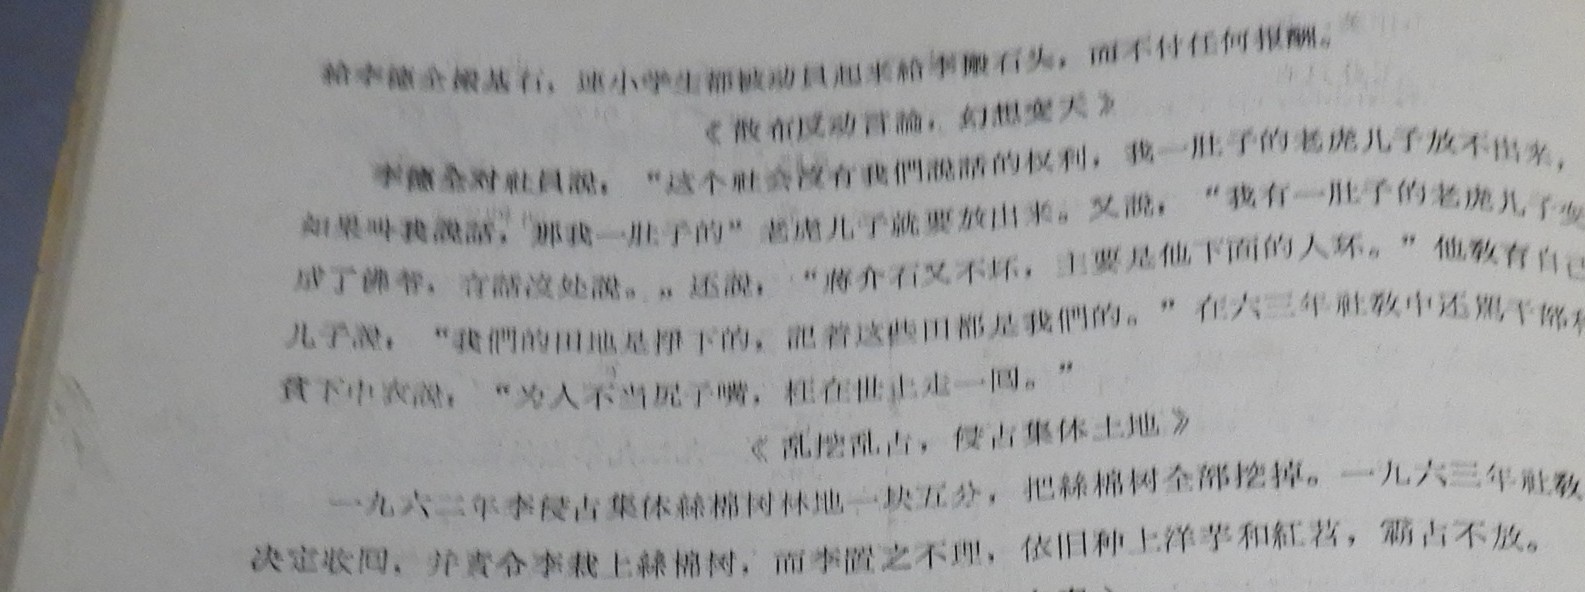 給李德全搬基石，連小学生都被动員起来給李搬石头，而不付任何报酬。
《散布反动言論，幻想变天》
李德全对社員說，“这个社会沒有我們說話的权利，我一肚子的老虎儿子放不出来，
如果叫我說話，那我一肚子的”老虎儿子就要放出来。又說，“我有一肚子的老虎儿子变
成了佛爷，有話沒处說。„还說，“蔣介石又不坏，主要是他下面的人坏。”他教育自己
儿子說，“我們的田地是挣下的，記着这些田都是我們的。”在六三年社教中还駡干部和
貧下中农說，“为人不当屁子嘴，枉在世上走一回。”
《乱挖乱占，侵占集体土地》
一九六二年李侵占集体絲棉树林地一块五分，把絲棉树全部挖掉。一九六三年社教
决定收回，并責令李栽上絲棉树，而李置之不理，依旧种上洋芋和紅苕，霸占不放。